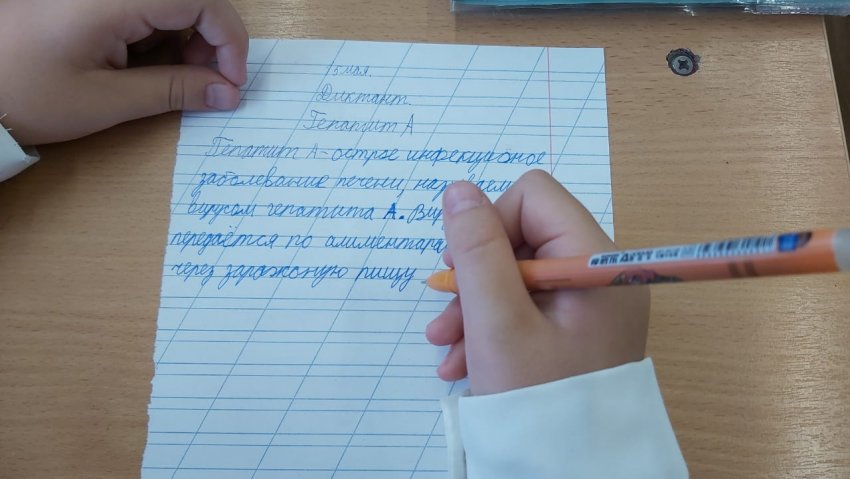 15 мая.
Диктант.
Гепатит А
Гепатит А - острое инфекционое
заболевание печени,
вирусом гепатита А.
передаётся по
через заражоную пищу